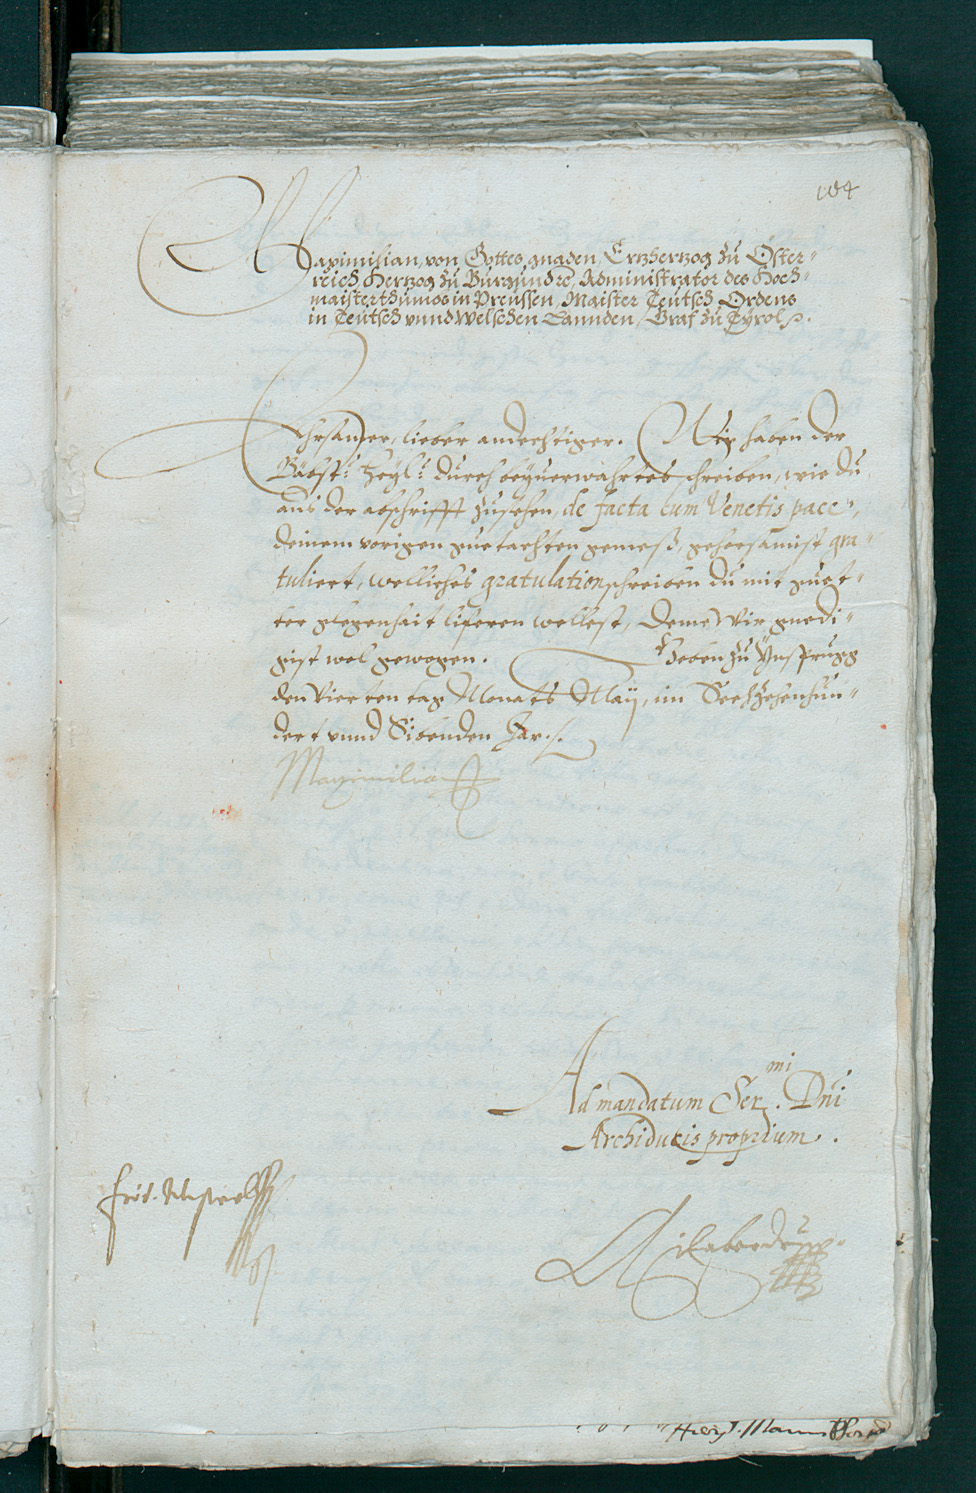 104
Maximilian, von Gottes gnaden, Ertzhertzog zu Öster-
reich, Hertzog zu Burgundt, Administrator des Hoch-
maisterthumbs in Preussen, Maister Teutsch Ordens
in Teutsch vnnd Welschen Lannden, Graf zu Tyrol
Ehrsamer, lieber andechtiger. Wir haben der
Bäbst: Heyl: durch beyuerwahrtes schreiben, wie du
aus der abschrifft zusehen, de facta cum Venetis pace,
deinem vorigen guetachten gemeß, gehorsamist gra-
tuliert, welliches gratulation schreiben du mit guet-
ter glegenhait liferen wellest, Deme wir gnedi-
gist wol gewogen. Geben zu Ynsprugg
den Vierten tag Monats Maij, im Sechzehenhun-
dert vnnd Sibenden Jar.
Maximilian
Ad mandatum Ser.mi Dni
Archiducis proprium.